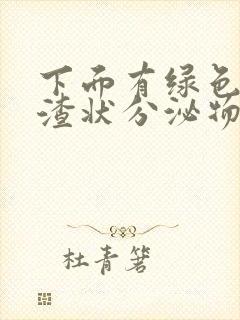 下而有绿色
渣状分泌物
杜青箸